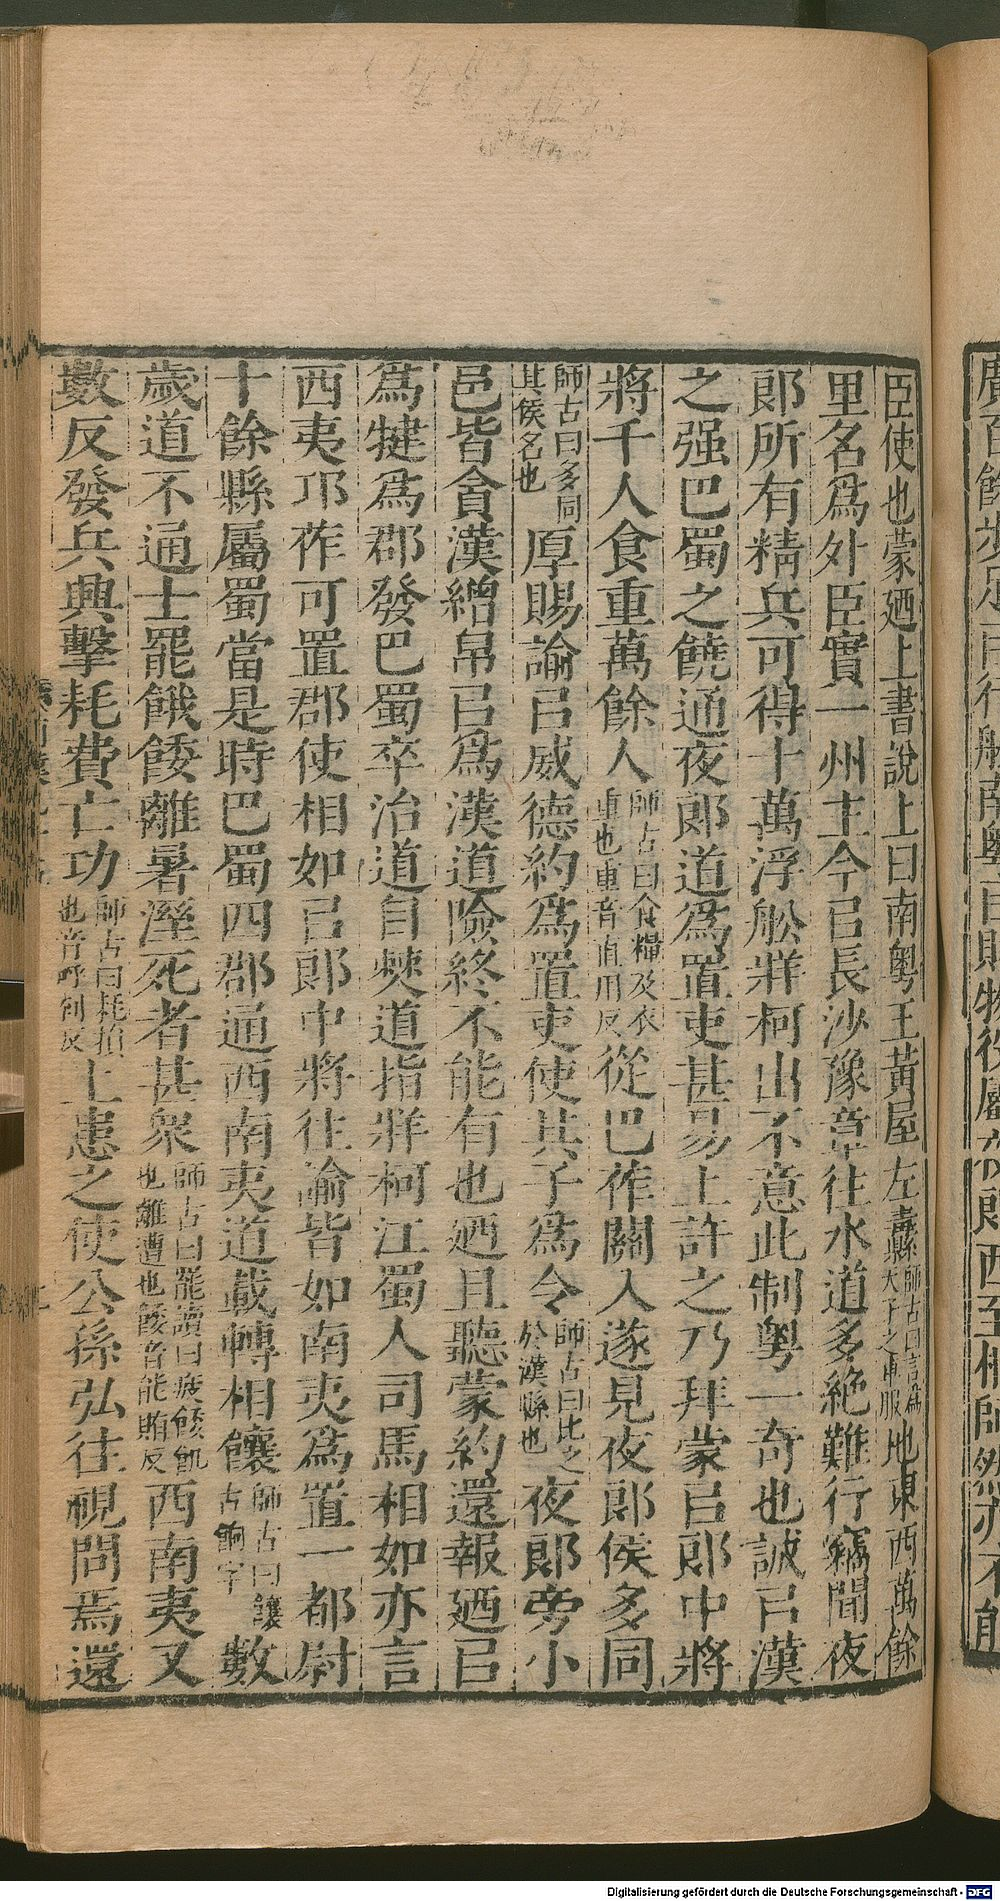 臣使也蒙廼上書說上曰南粵王黃屋左纛師古曰言爲天子之車服地東西萬餘
里名爲外臣實一州主今㠯長沙豫章往水道多絶難行竊聞夜
郎所有精兵可得十萬浮舩牂柯出不意此制粵一奇也誠㠯漢
之强巴蜀之饒通夜郎道爲置吏甚易上許之乃拜蒙㠯郎中將
將千人食重萬餘人師古曰食糧及衣重也重音直用反從巴莋關入遂見夜郎侯多同
師古曰多同其侯名也厚賜諭㠯威德約爲置吏使其子爲令師古曰比之於漢縣也夜郎旁小
邑皆貪漢繒帛㠯爲漢道險終不能有也廼且聽蒙約還報廼㠯
爲犍爲郡發巴蜀卒治道自僰道指牂柯江蜀人司馬相如亦言
西夷邛莋可置郡使相如㠯郎中將往諭皆如南夷爲置一都尉
十餘縣屬蜀當是時巴蜀四郡通西南夷道載轉相饟師古曰饟古餉字數
歲道不通士罷餓餧離暑溼死者甚衆師古曰罷讀曰疲餧飢也離遭也餧音能賄反西南夷又
數反發兵興擊耗費亡功師古曰耗損也音呼到反上患之使公孫弘往視問焉還
Digitalisierung gefördert durch die Deutsche Forschungsgemeinschaft - DFG